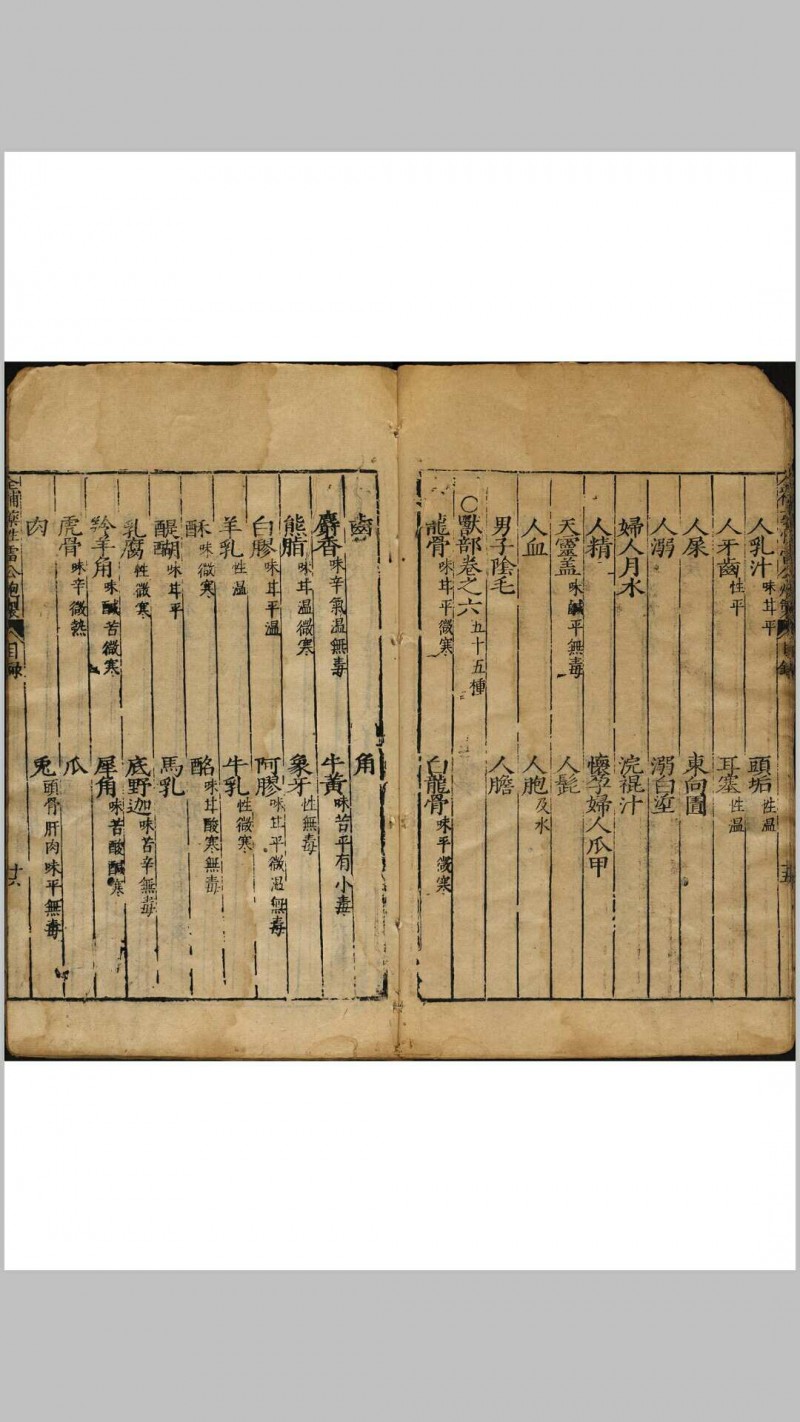 人乳汁味甘平　頭垢性温
人牙齒性平　耳塞性温
人屎　東向圊
人溺　溺白垽
婦人月水　浣裩汁
人精　懷孕婦人爪甲
天靈盖味鹹平無毒　人髭
人血　人胞及水
男子陰毛　人膽
○獸部卷之六五十五種
龍骨味甘平微寒　白龍骨味平微寒
齒　角
麝香味辛氣温無毒　牛黃味苦平有小毒
熊脂味甘温微寒　象牙性無毒
白膠味甘平温　阿膠味甘平微温無毒
羊乳性温　牛乳性微寒
酥味微寒　酪味甘酸寒無毒
醍醐味甘平　馬乳
乳腐性微寒　底野迦味苦辛無毒
羚羊角味鹹苦微寒　犀角味苦酸鹹寒
虎骨味辛微熱　爪
肉　兎頭骨肝肉味平無毒
目録
十六